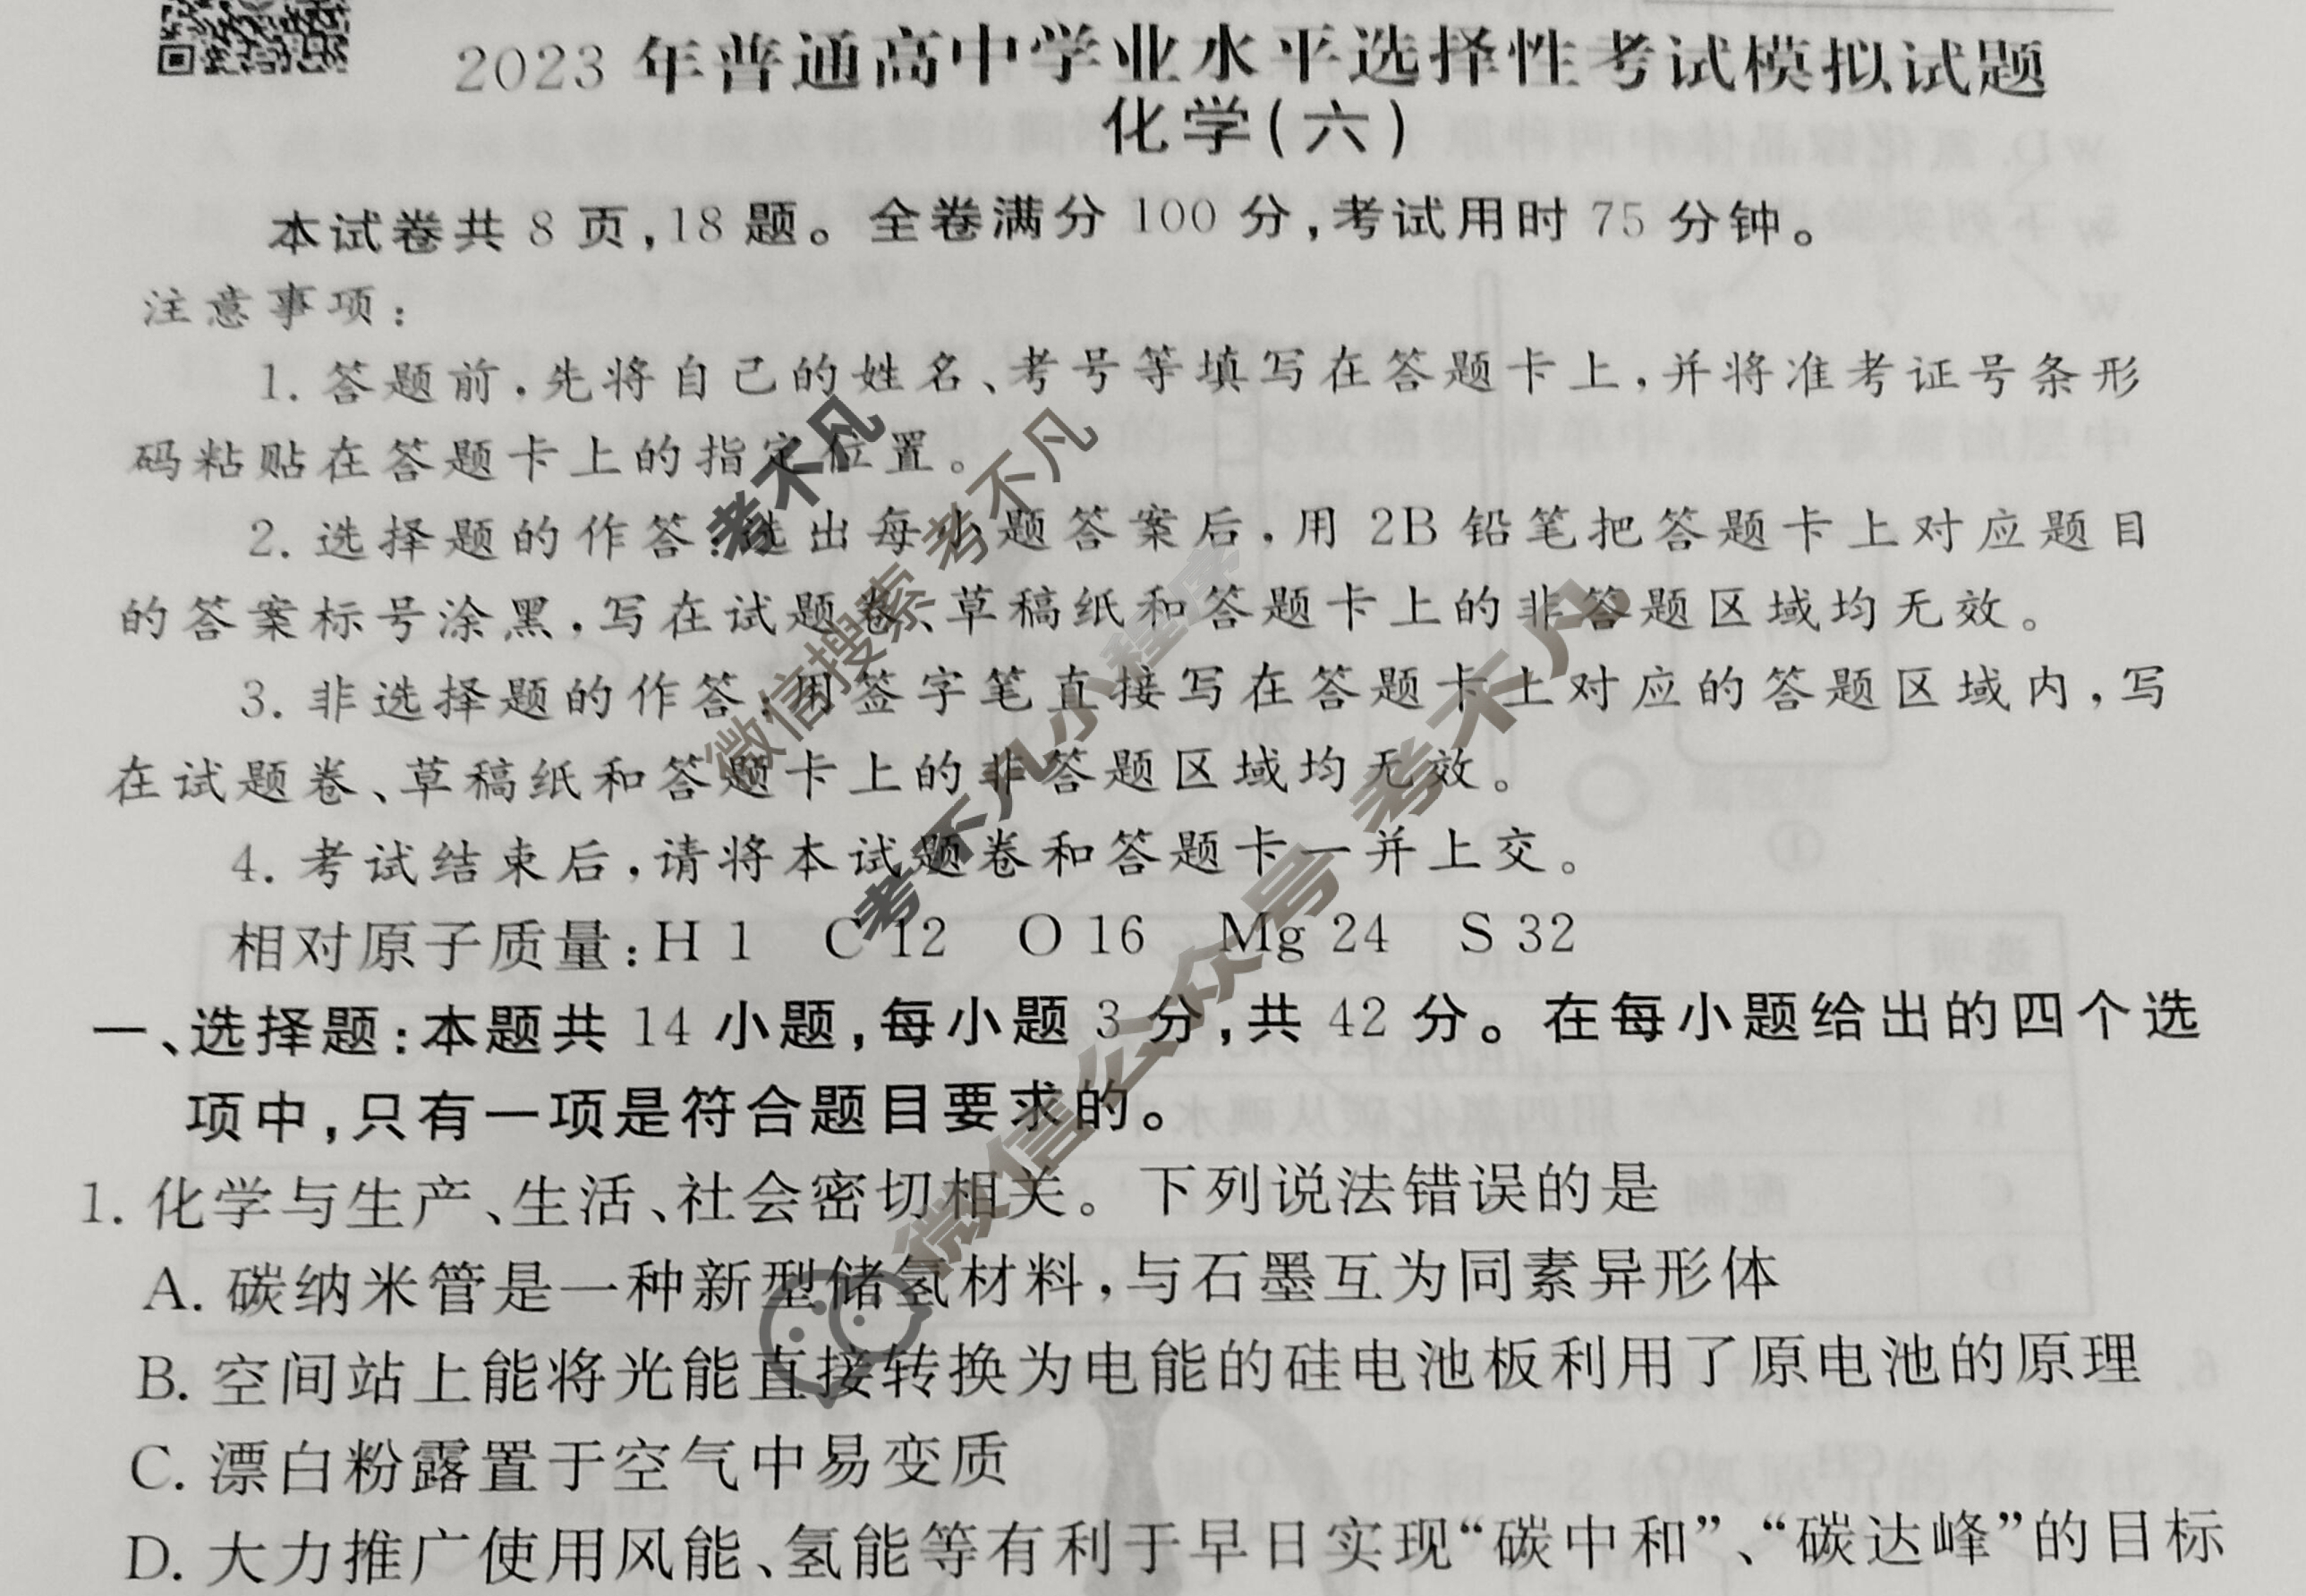 2023 年普通高中学业水平选择性考试模拟试题
化学(六)
本试卷共 8 页,18 题。全卷满分 100 分,考试用时 75 分钟。
注意事项:
1. 答题前,先将自己的姓名、考号等填写在答题卡上,并将准考证号条形
码粘贴在答题卡上的指定位置。
2. 选择题的作答:选出每小题答案后,用 2B 铅笔把答题卡上对应题目
的答案标号涂黑,写在试题卷、草稿纸和答题卡上的非答题区域均无效。
3. 非选择题的作答:用签字笔直接写在答题卡上对应的答题区域内,写
在试题卷、草稿纸和答题卡上的非答题区域均无效。
4. 考试结束后,请将本试题卷和答题卡一并上交。
相对原子质量:H 1 C 12 O 16 Mg 24 S 32
一、选择题:本题共 14 小题,每小题 3 分,共 42 分。在每小题给出的四个选
项中,只有一项是符合题目要求的。
1. 化学与生产、生活、社会密切相关。下列说法错误的是
A. 碳纳米管是一种新型储氢材料,与石墨互为同素异形体
B. 空间站上能将光能直接转换为电能的硅电池板利用了原电池的原理
C. 漂白粉露置于空气中易变质
D. 大力推广使用风能、氢能等有利于早日实现“碳中和”、“碳达峰”的目标
考不凡
微信搜索 考不凡
考不凡小程序
微信公众号 考不凡